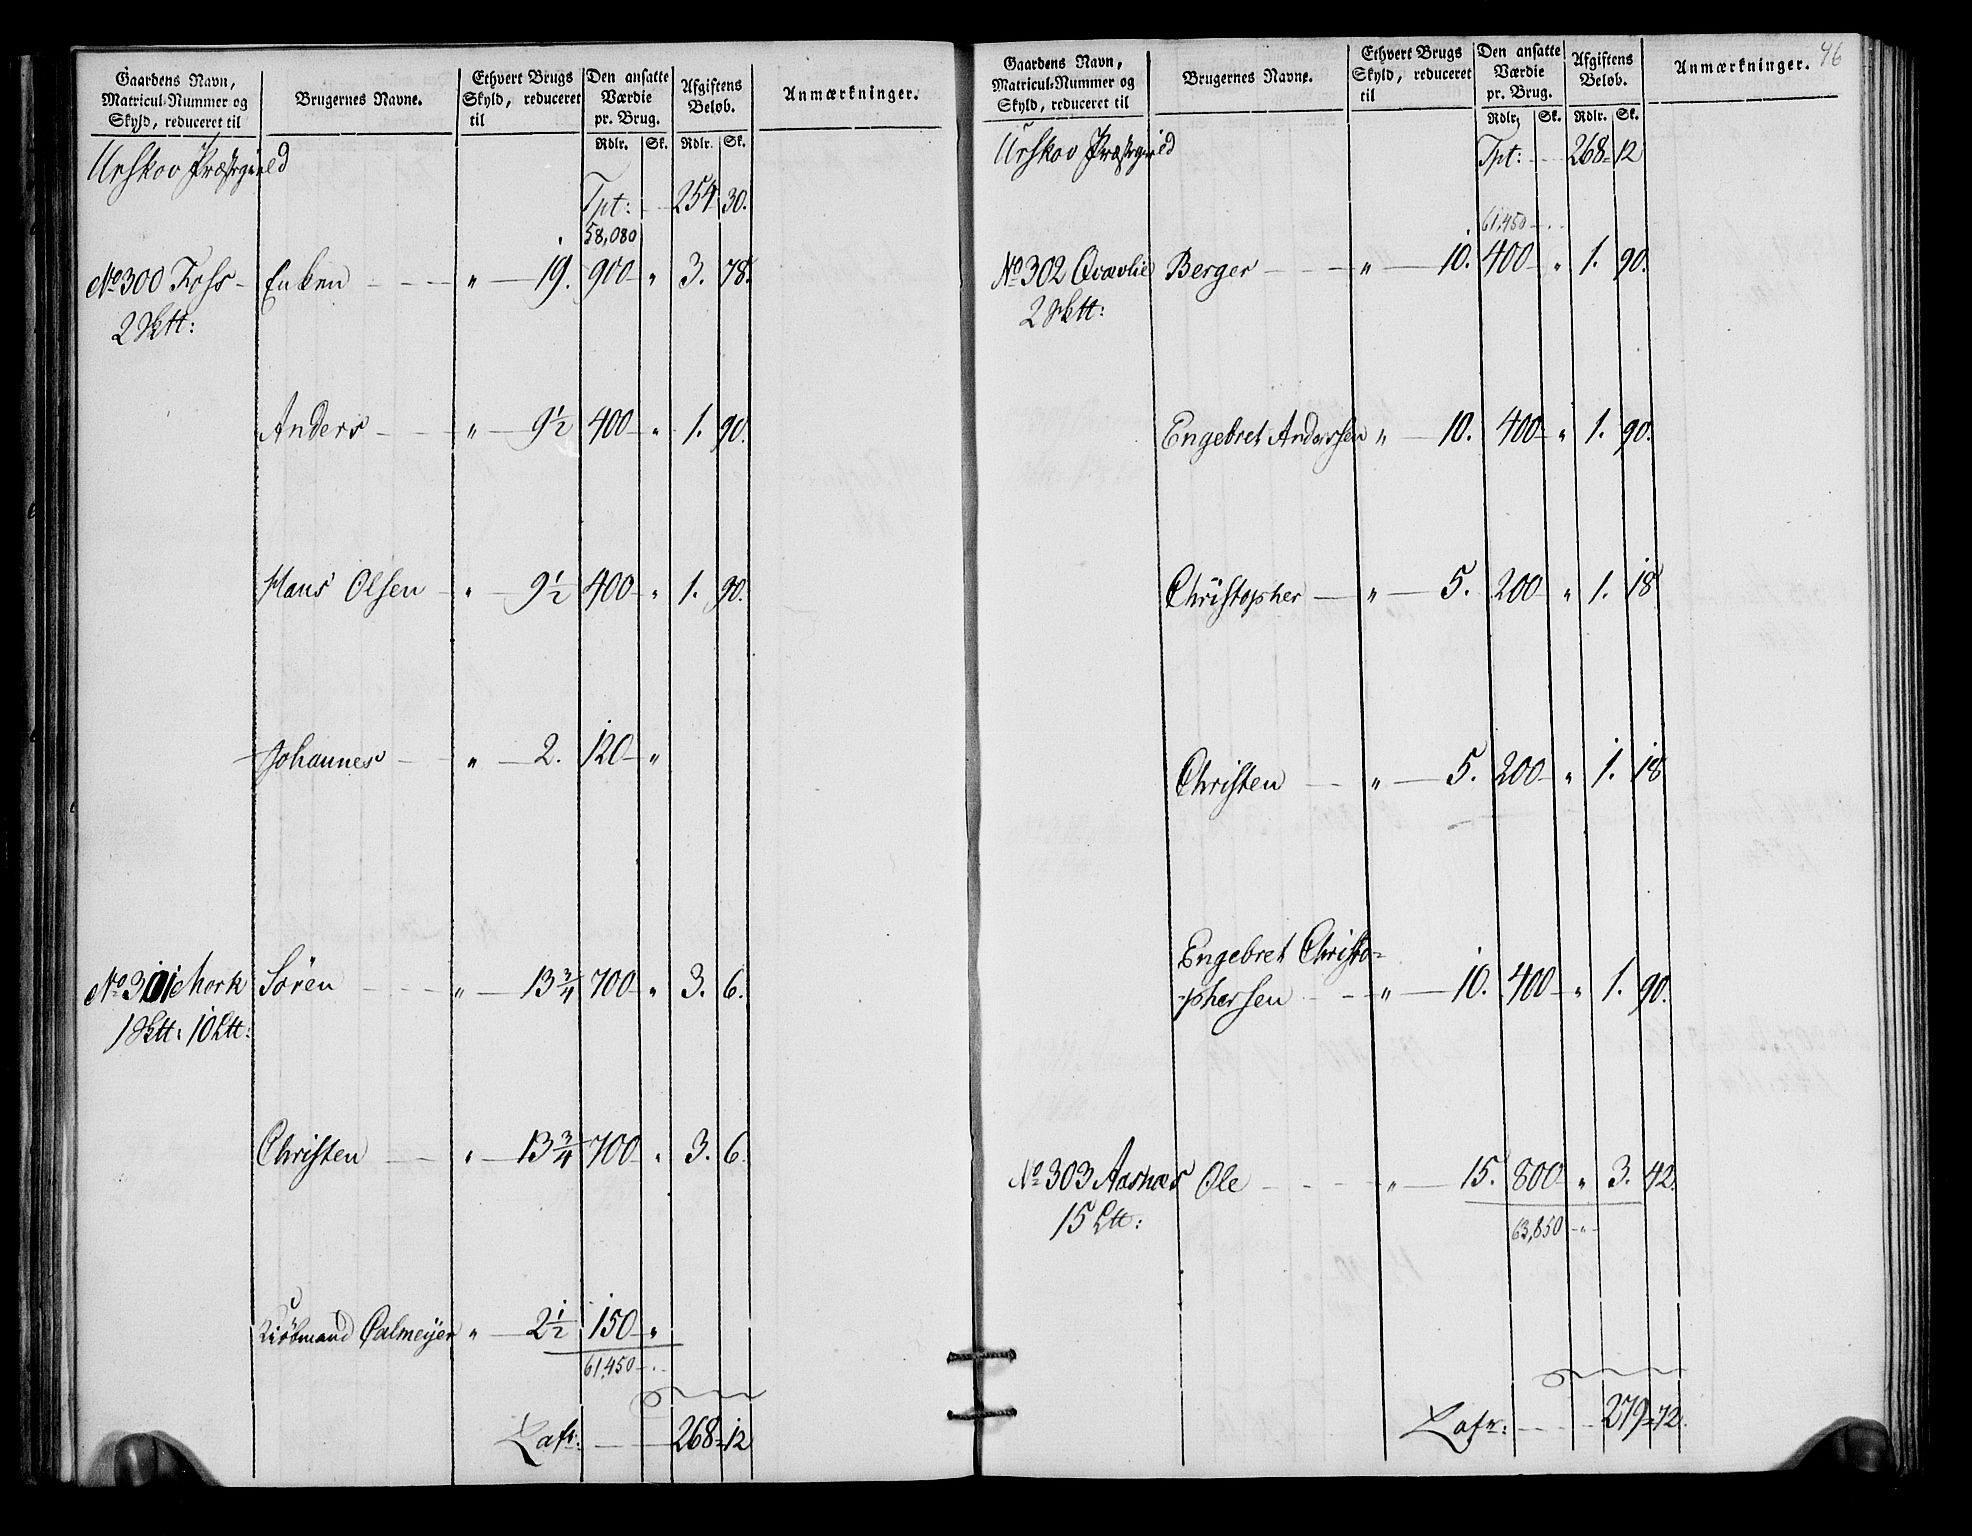 Gaardens Navn, Matricul-Nummer og Skyld, reduceret til | Brugernes Navne. | Ethvert Brugs Skyld, reduceret til | Den ansatte Værdie pr. Brug. Rdlr. Sk. | Afgiftens Beløb. Rdlr. Sk. | Anmærkninger.
Urskov Præstegield
Tpt: 254 30.
58,080
No 300 Fohs Enken " 19. 900 " 3. 78.
2 Sktt:
Anders " 9 1/2 400 " 1. 90.
Hans Olsen " 9 1/2 400 " 1. 90.
Johannes " 2. 120 "
No 301 Mork Sören " 13 3/4 700 " 3. 6.
1 Sktt: 10 Ltt:
Christen " 13 3/4 700 " 3. 6.
Kiöbmand Calmeijer " 2 1/2 150 "
61,450
Lafr: 268 = 12
46
Gaardens Navn, Matricul-Nummer og Skyld, reduceret til | Brugernes Navne. | Ethvert Brugs Skyld, reduceret til | Den ansatte Værdie pr. Brug. Rdlr. Sk. | Afgiftens Beløb. Rdlr. Sk. | Anmærkninger.
Urskov Præstegield Tpt: 268 = 12
61,450
No 302 Qvævlie Berger " 10. 400 " 1. 90.
2 Sktt:
Engebret Andersen " 10. 400 " 1. 90.
Christopher " 5. 200 " 1. 18
Christen " 5. 200 " 1. 18
Engebret Christo-
phersen " 10. 400 " 1. 90.
No 303 Aasnæs Ole " 15. 800 " 3. 42.
15 Ltt:
63,850
Lafr: 279 = 72.